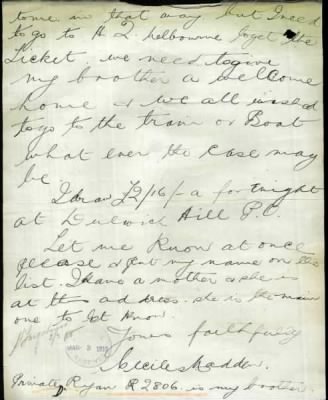 to me in that way but I need
to go to H Q Melbourne to get the
Ticket. we need to give
my brother a wellcome
home & we all wished
to go to the train or Boat
what ever the case may
be.
I draw £2/16/- a fortnight
at Dulwich Hill P.O.
Let me know at once
please & put my name on the
list. I have a mother & she is
at this address. she is the main
one to let know.
Yours faithfully
Cecile Madder
MAR 3 1919
Private Ryan R 2806. is my brother.